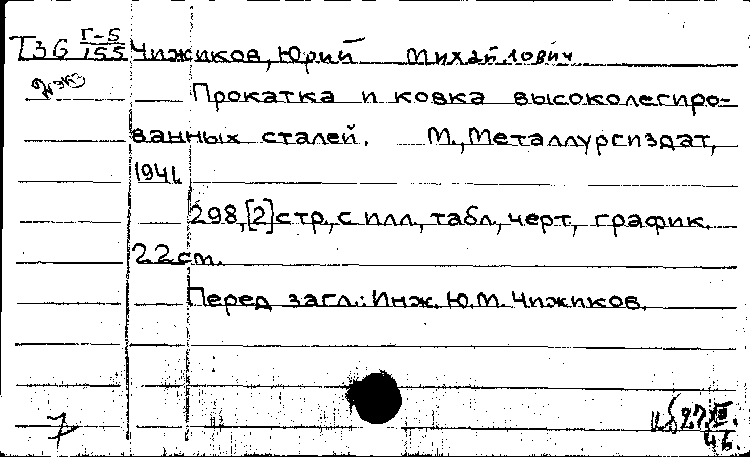 Т36 Г-5/155 Чижиков, Юрий Михайлович
экз
Прокатка и ковка высоколегиро-
ванных сталей. М., Металлургиздат,
1941.
298, [2] стр., с илл., табл., черт., график.
22 см.
Перед загл.: Инж. Ю. М. Чижиков.
7
27.VIII.
46.